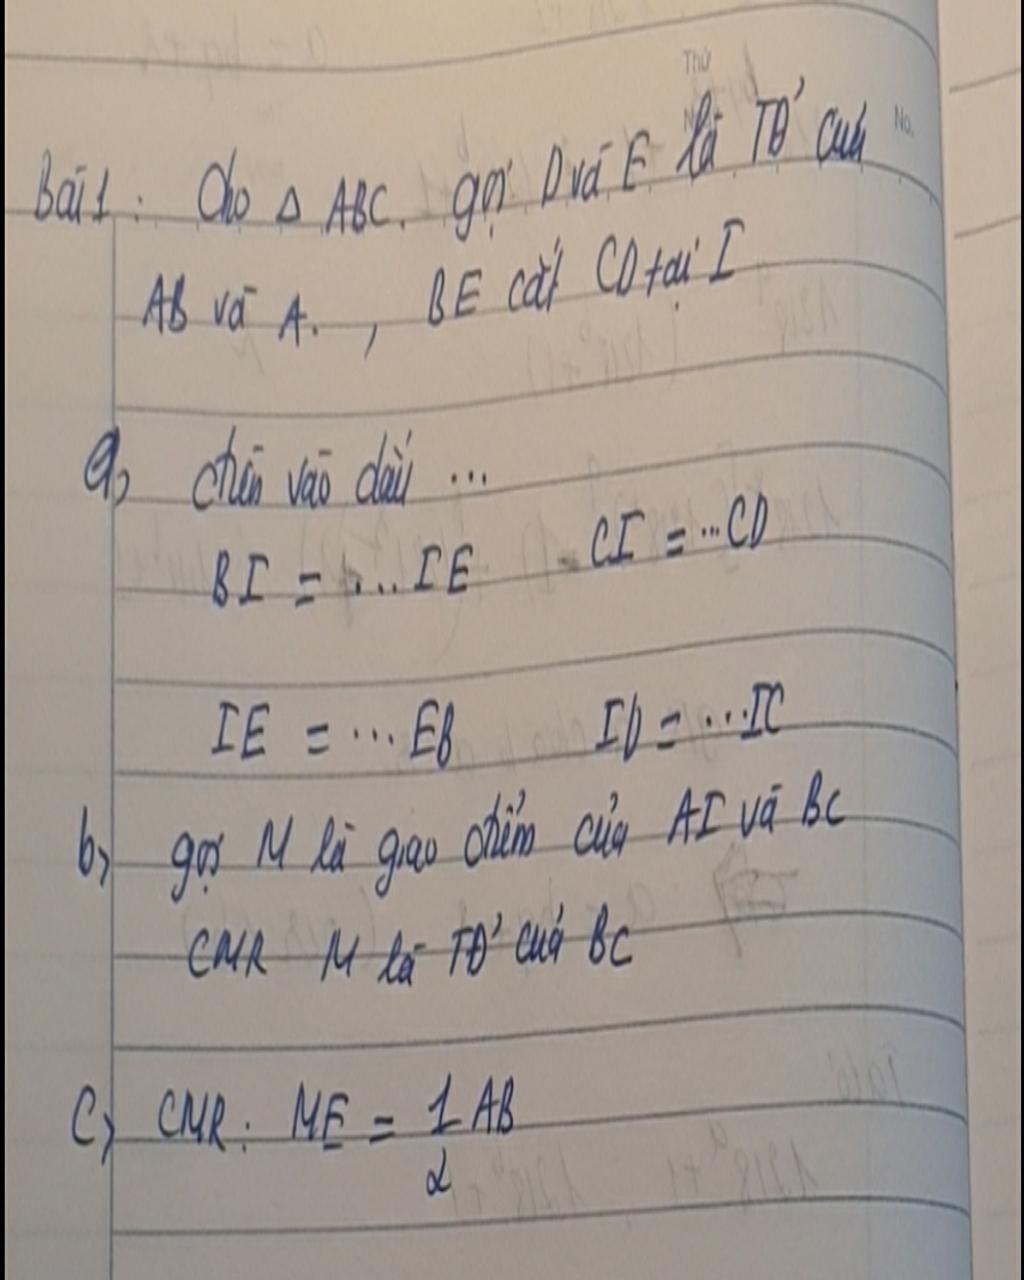 Thứ
No.
Bài 1: Cho Δ ABC. gọi D và E là TĐ' của
AB và A. , BE cắt CD tại I
a, điền vào dấu ...
BI = ... IE - CI = ... CD
IE = ... EB ID = ... IC
b, gọi M là giao điểm của AI và BC
CMR M là TĐ' của BC
c, CMR: ME = 1/2 AB